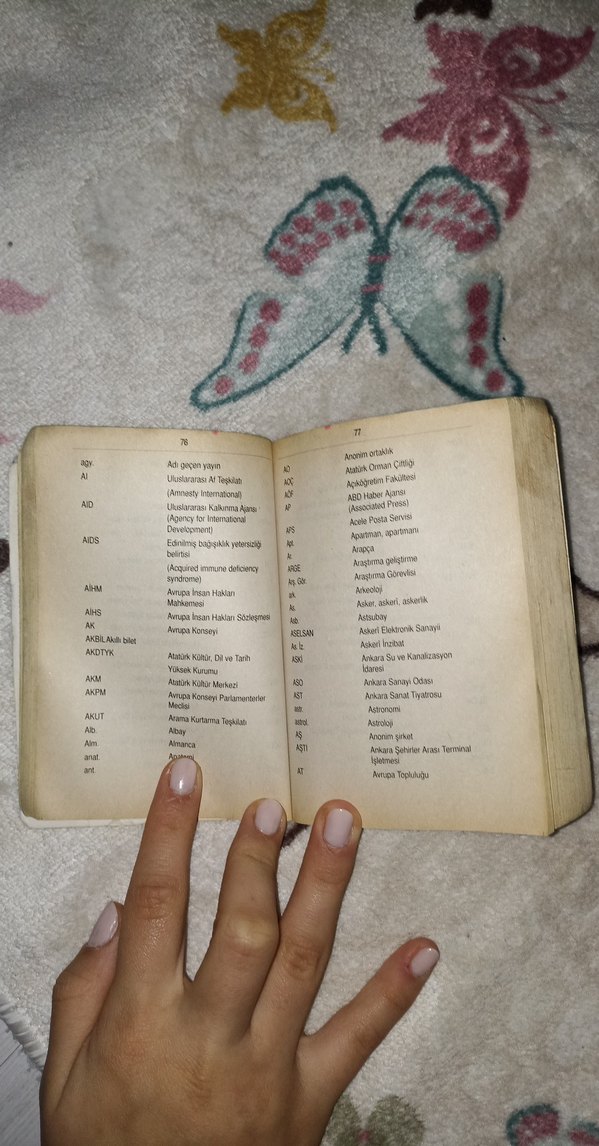 76
agy. Adı geçen yayın
AI Uluslararası Af Teşkilatı
(Amnesty International)
AID Uluslararası Kalkınma Ajansı
(Agency for International
Development)
AIDS Edinilmiş bağışıklık yetersizliği
belirtisi
(Acquired immune deficiency
syndrome)
AİHM Avrupa İnsan Hakları
Mahkemesi
AİHS Avrupa İnsan Hakları Sözleşmesi
AK Avrupa Konseyi
AKBİL Akıllı bilet
AKDTYK Atatürk Kültür, Dil ve Tarih
Yüksek Kurumu
AKM Atatürk Kültür Merkezi
AKPM Avrupa Konseyi Parlamenterler
Meclisi
AKUT Arama Kurtarma Teşkilatı
Alb. Albay
Alm. Almanca
anat. Anatomi
ant.
77
AO Anonim ortaklık
AOÇ Atatürk Orman Çiftliği
AÖF Açıköğretim Fakültesi
AP ABD Haber Ajansı
(Associated Press)
APS Acele Posta Servisi
Apt. Apartman, apartmanı
Ar. Arapça
ARGE Araştırma geliştirme
Arş. Gör. Araştırma Görevlisi
ark. Arkeoloji
As. Asker, askerî, askerlik
Asb. Astsubay
ASELSAN Askerî Elektronik Sanayii
As. İz. Askerî İnzibat
ASKİ Ankara Su ve Kanalizasyon
İdaresi
ASO Ankara Sanayi Odası
AST Ankara Sanat Tiyatrosu
astr. Astronomi
astrol. Astroloji
AŞ Anonim şirket
AŞTİ Ankara Şehirler Arası Terminal
İşletmesi
AT Avrupa Topluluğu